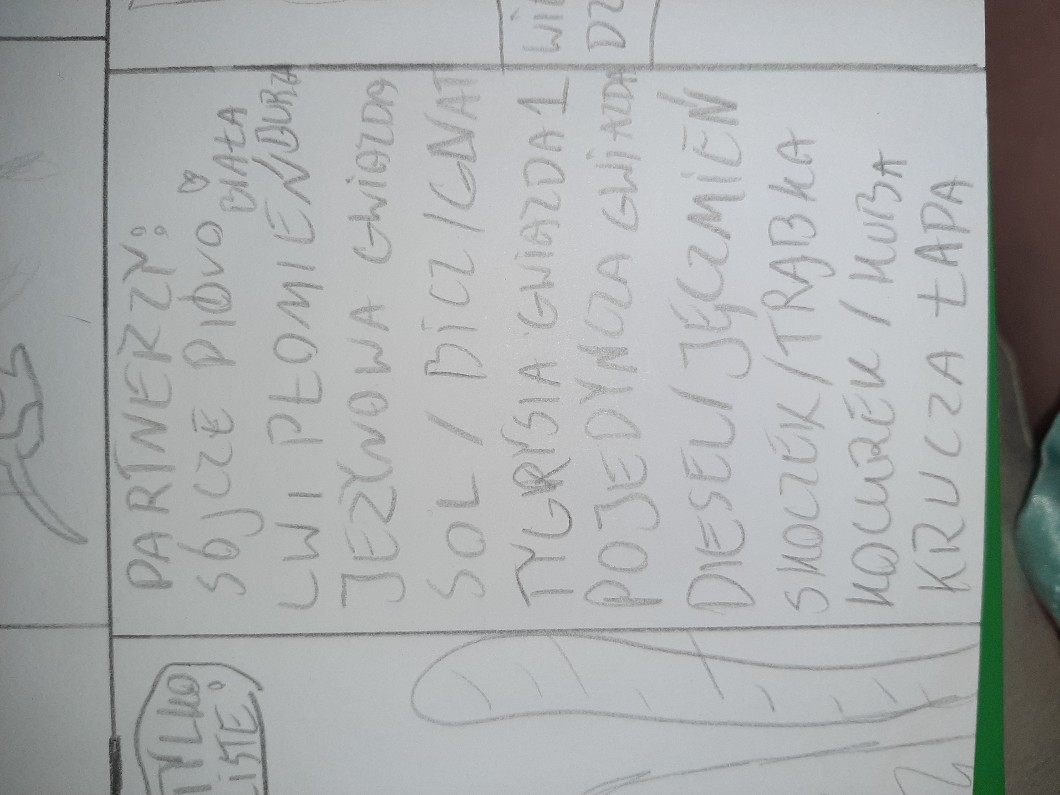 PARTNERZY:
SÓJCZE PIÓRO
LWI PŁOMIEŃ/BIAŁA BURZA
JEŻYNOWA GWIAZDA
SOL / BICZ / GNAT
TYGRYSIA GWIAZDA 1
POJEDYNCZA GWIAZDA
DIESEL / JĘCZMIEŃ
SKOCZEK / TRĄBKA
KOCUREK / KUBA
KRUCZA ŁAPA
TYLKO